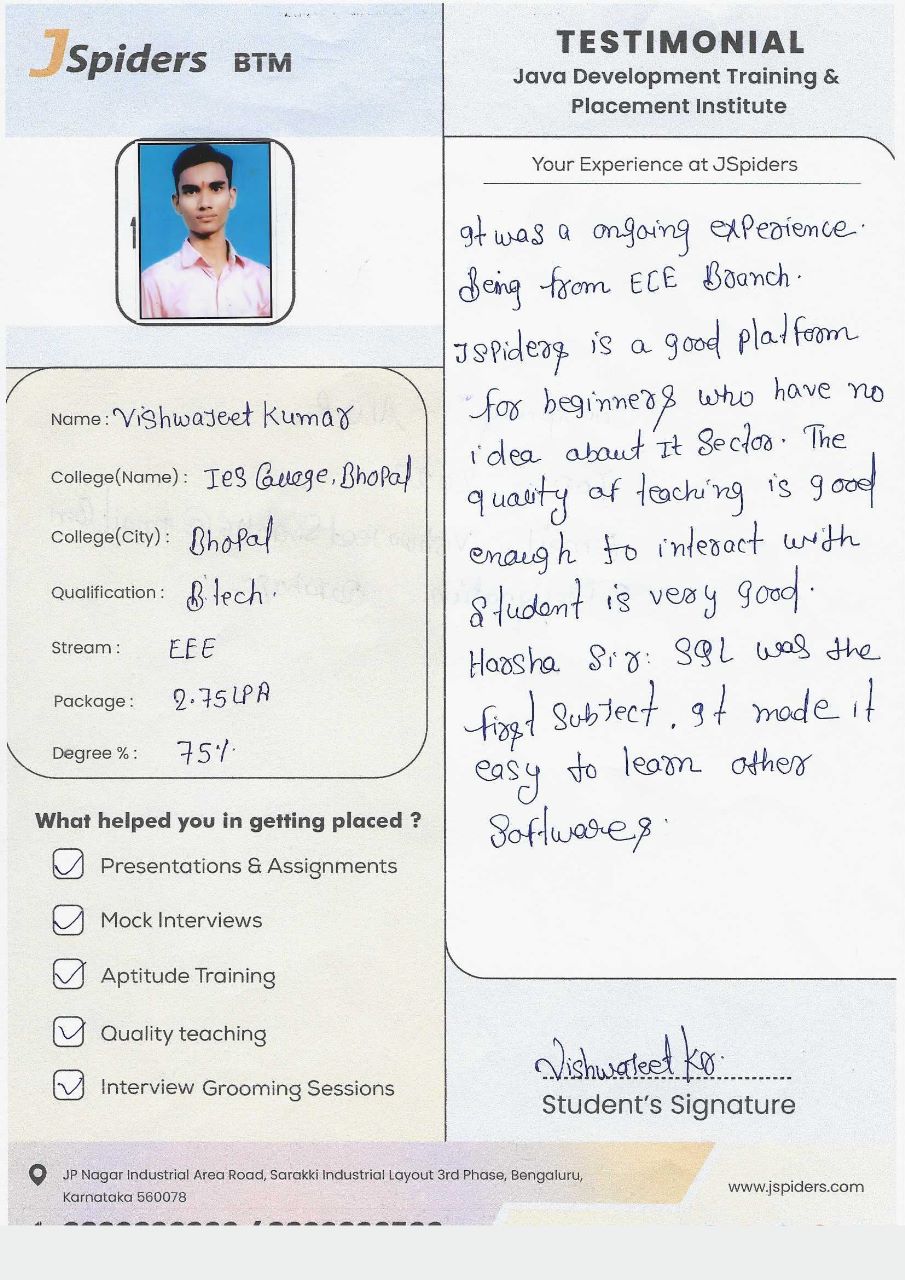 JSpiders BTM
TESTIMONIAL
Java Development Training &
Placement Institute
Your Experience at JSpiders
It was a ongoing experience.
Being from ECE Branch.
JSPiders is a good platform
for beginners who have no
idea about It Sector. The
quality of teaching is good
enough to interact with
Student is very good.
Harsha Sir: SQL was the
first Subject. It made it
easy to learn other
Softwares.
Name : Vishwajeet Kumar
College(Name) : Ies College, Bhopal
College(City) : Bhopal
Qualification : B.tech.
Stream : EEE
Package : 2.75 LPA
Degree % : 75%
What helped you in getting placed ?
Presentations & Assignments
Mock Interviews
Aptitude Training
Quality teaching
Interview Grooming Sessions
Vishwajeet Kr.
Student's Signature
JP Nagar Industrial Area Road, Sarakki Industrial Layout 3rd Phase, Bengaluru,
Karnataka 560078
www.jspiders.com